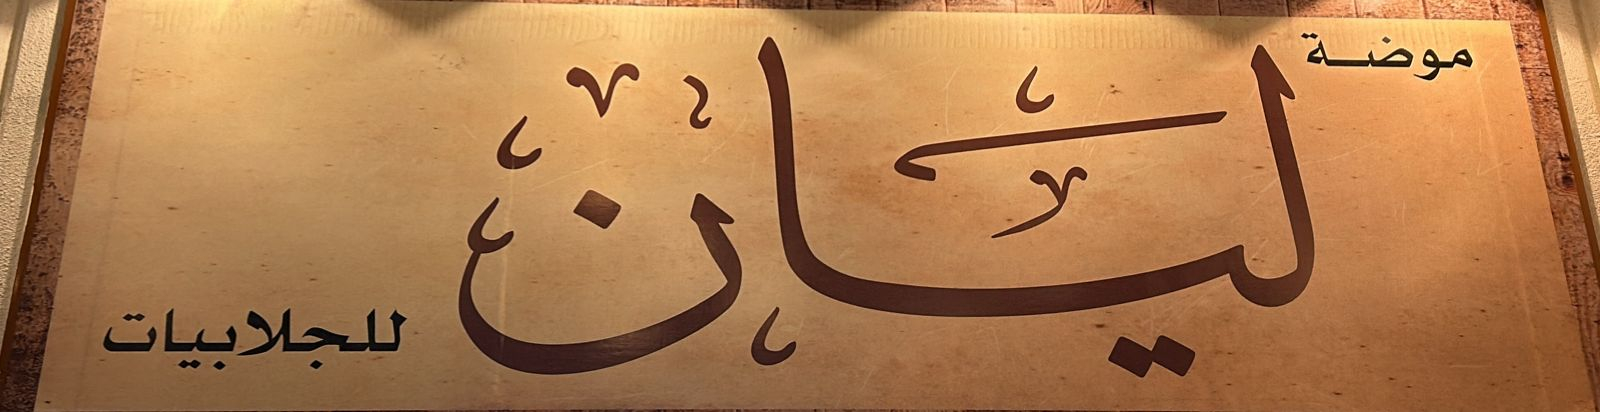 موضة
ليان
للجلابيات